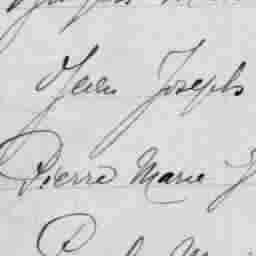 Jean Joseph
Pierre Marie J